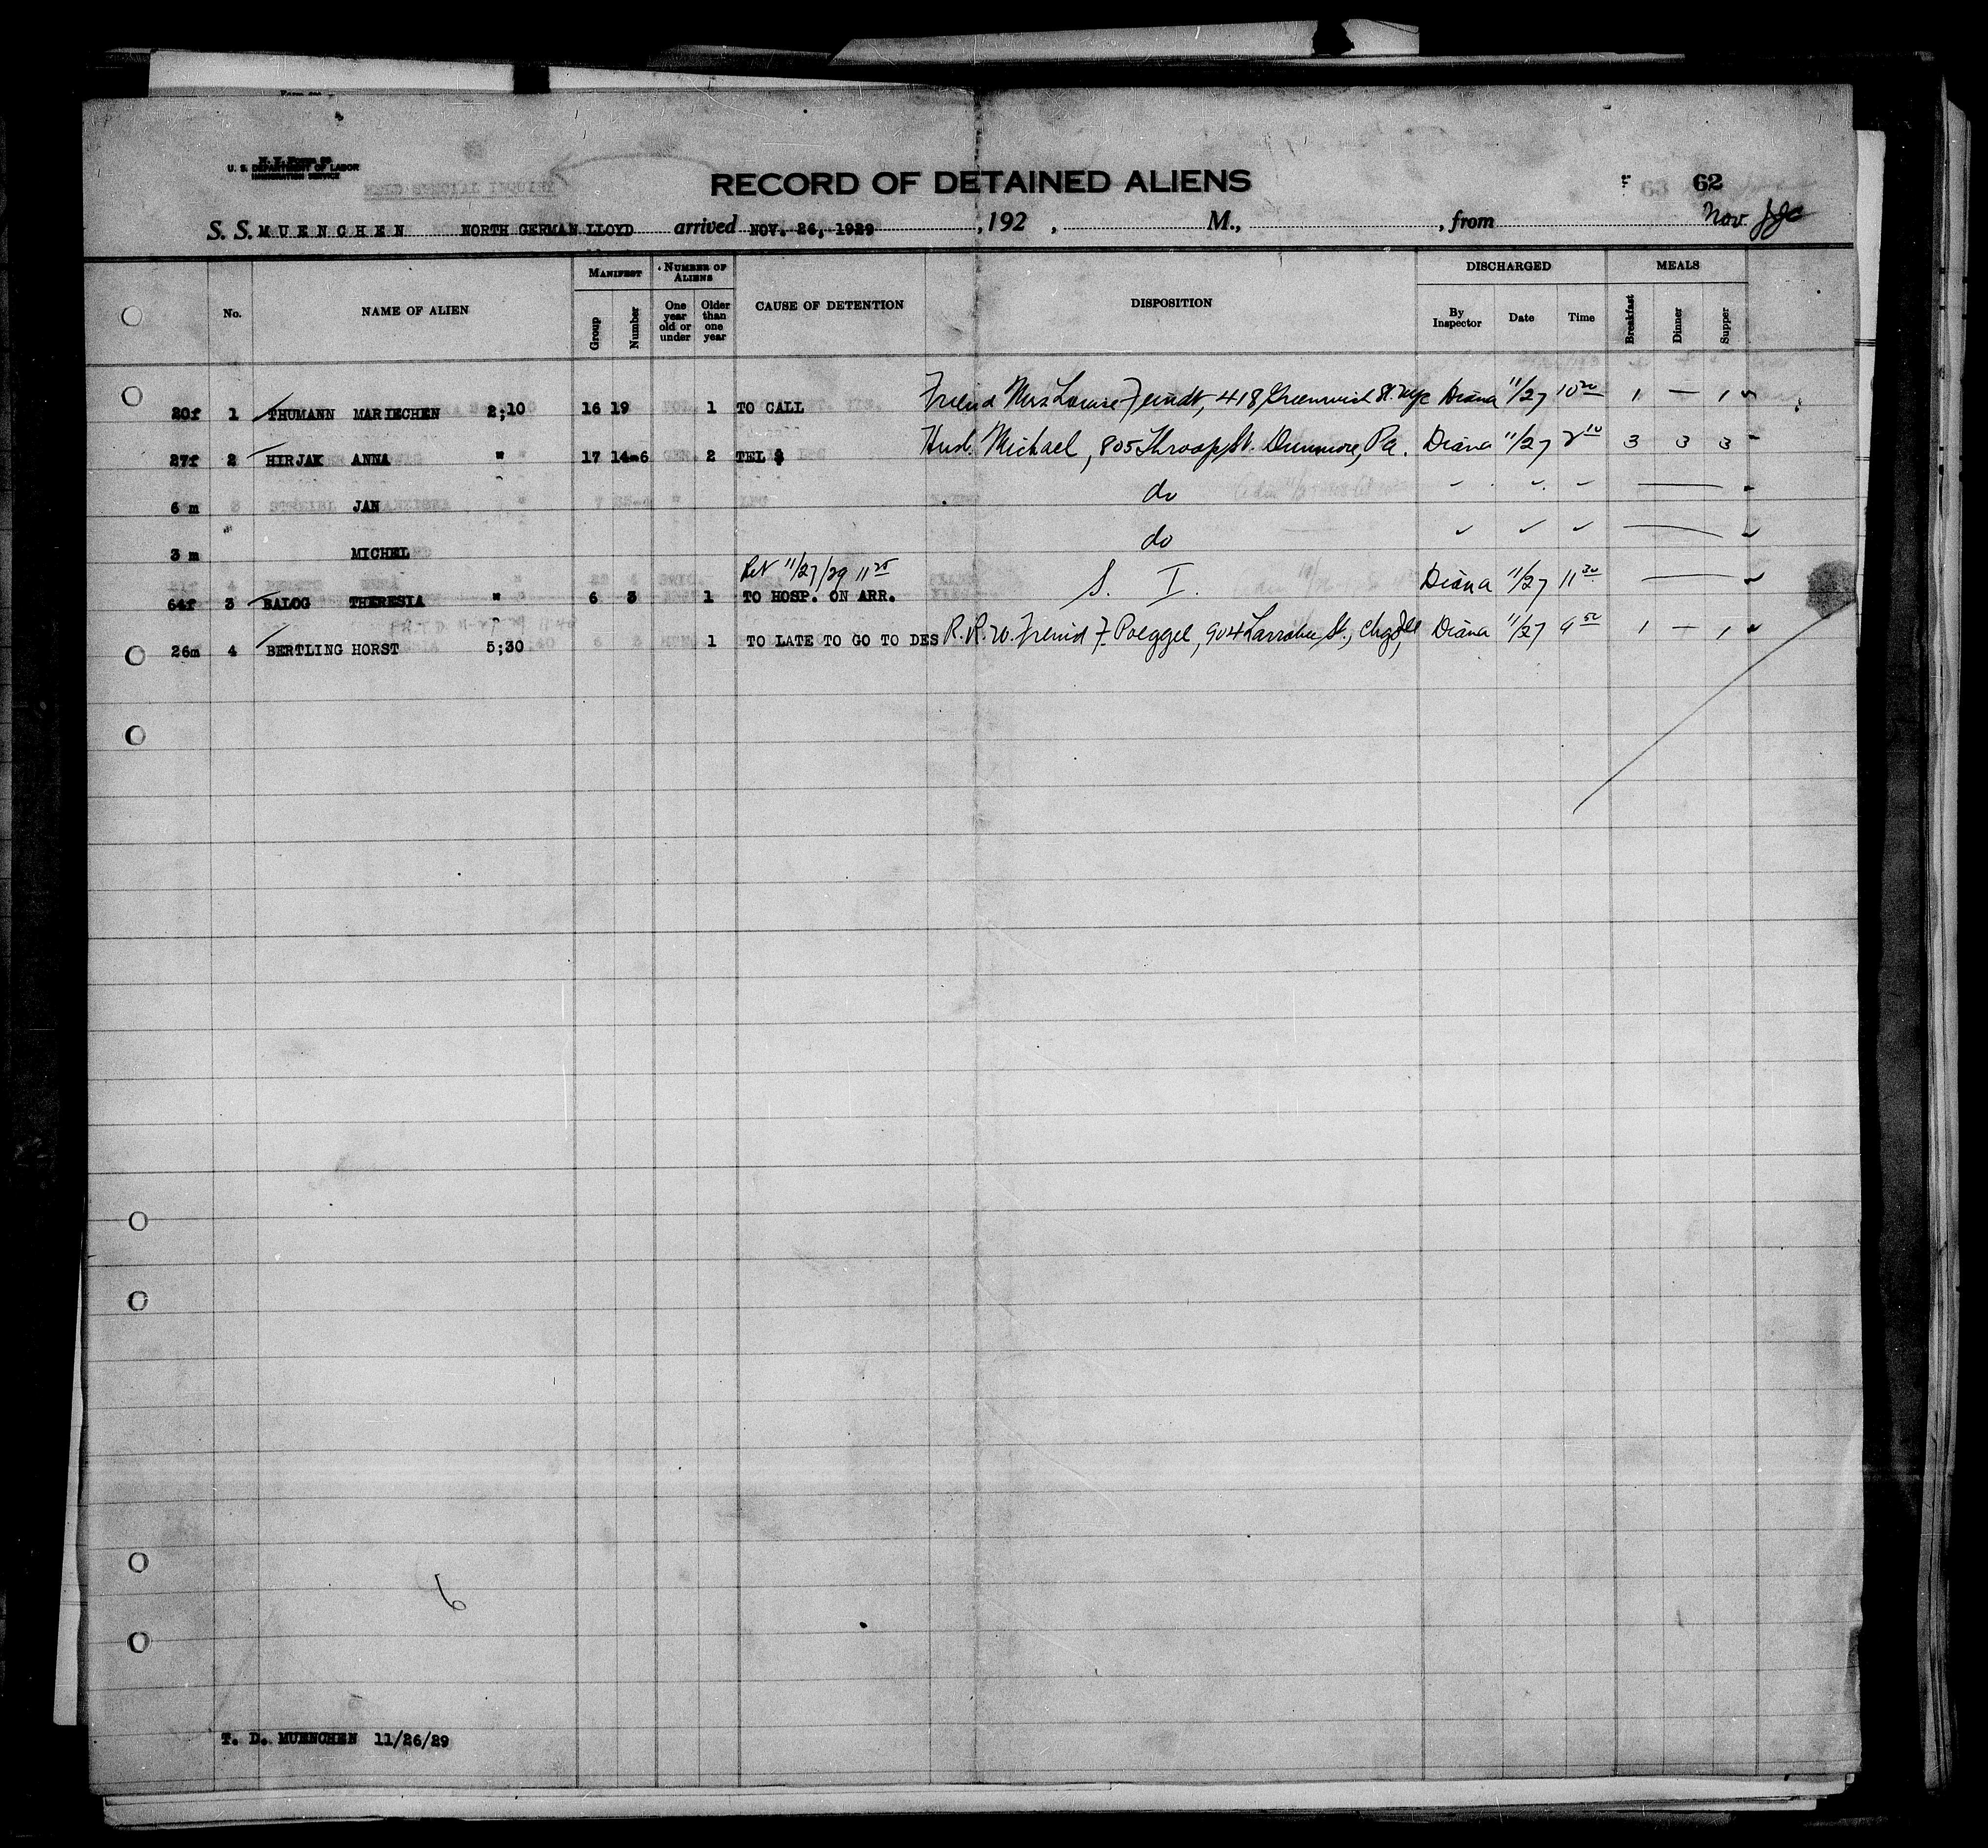 U. S. DEPARTMENT OF LABOR
IMMIGRATION SERVICE
HELD SPECIAL INQUIRY
RECORD OF DETAINED ALIENS
63 62
S. S. MUENCHEN NORTH GERMAN LLOYD arrived NOV. 26, 1929 , 192 , M., , from Nov
No. NAME OF ALIEN MANIFEST NUMBER OF ALIENS CAUSE OF DETENTION DISPOSITION DISCHARGED MEALS
Group Number One year old or under Older than one year By Inspector Date Time Breakfast Dinner Supper
20f 1 THUMANN MARIECHEN 2;10 16 19 1 TO CALL Friend Mrs Louise Feindt, 418 Greenwich St. Nyc Diana 11/27 10 20 1 — 1
27f 2 HIRJAK ANNA " 17 14-6 2 TEL $ Husb. Michael, 805 Throop St. Dunmore, Pa. Diana 11/27 2 10 3 3 3
6 m JAN do
3 m MICHEL do
Ret 11/27/29 11 25
64f 3 BALOG THERESIA " 6 3 1 TO HOSP. ON ARR. S. I. Diana 11/27 11 30
26m 4 BERTLING HORST 5;30 1 TO LATE TO GO TO DES R.R.W. Friend F. Poeggel, 904 Larrabee St., Chgo, Ill Diana 11/27 9 50 1 — 1
6
T. D. MUENCHEN 11/26/29